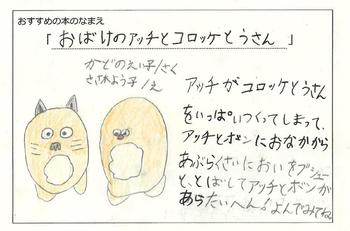 おすすめの本のなまえ
「おばけのアッチとコロッケとうさん」
かどのえい子/さく
ささきよう子/え
アッチがコロッケとうさん
をいっぱいつくってしまって、
アッチとボンにおなかから
あぶらくさいにおいをプシュー
と、とばしてアッチとボンが
あらたいへん!よんでみてね